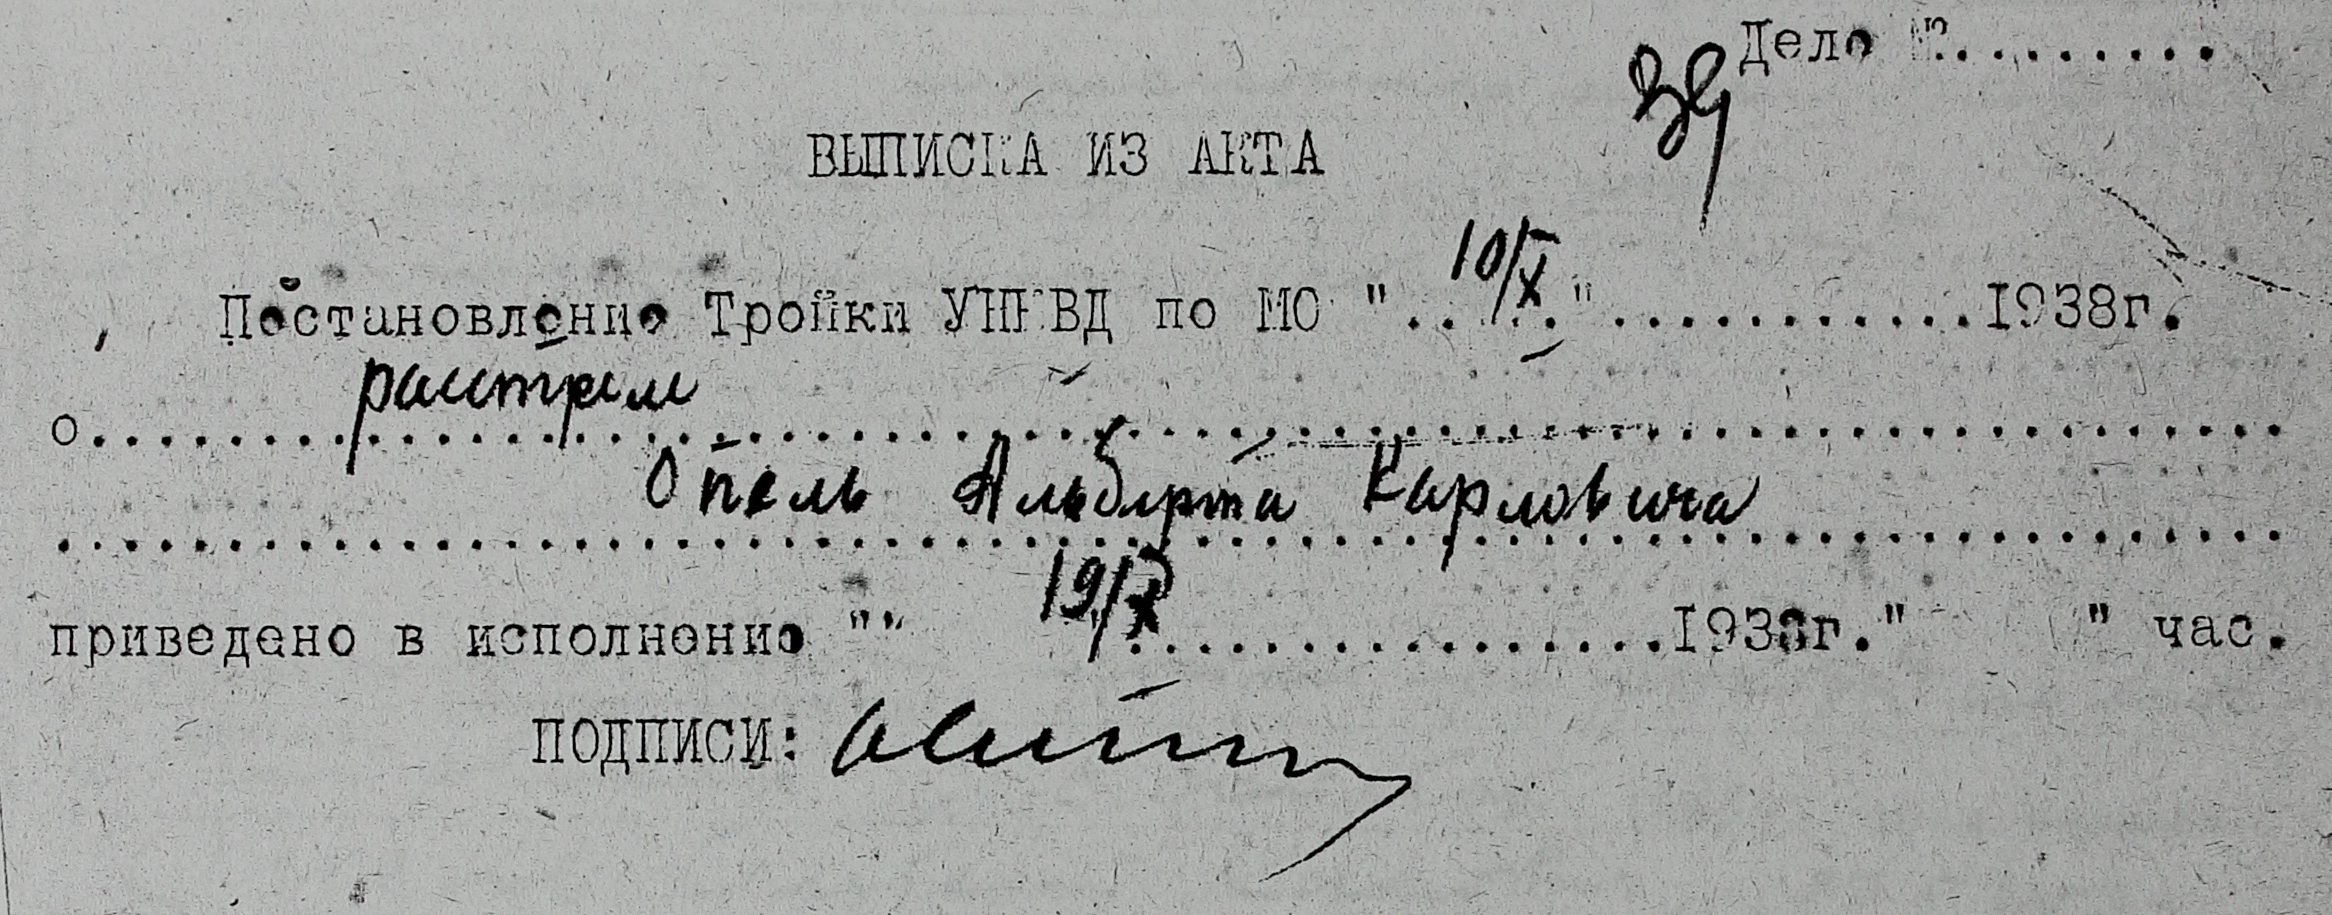 Дело №.........
39
ВЫПИСКА ИЗ АКТА
Постановление Тройки УНКВД по МО "10/X"...........1938г.
о расстреле
Опель Альберта Карловича
приведено в исполнение "" 19/X................1938г." " час.
ПОДПИСИ: